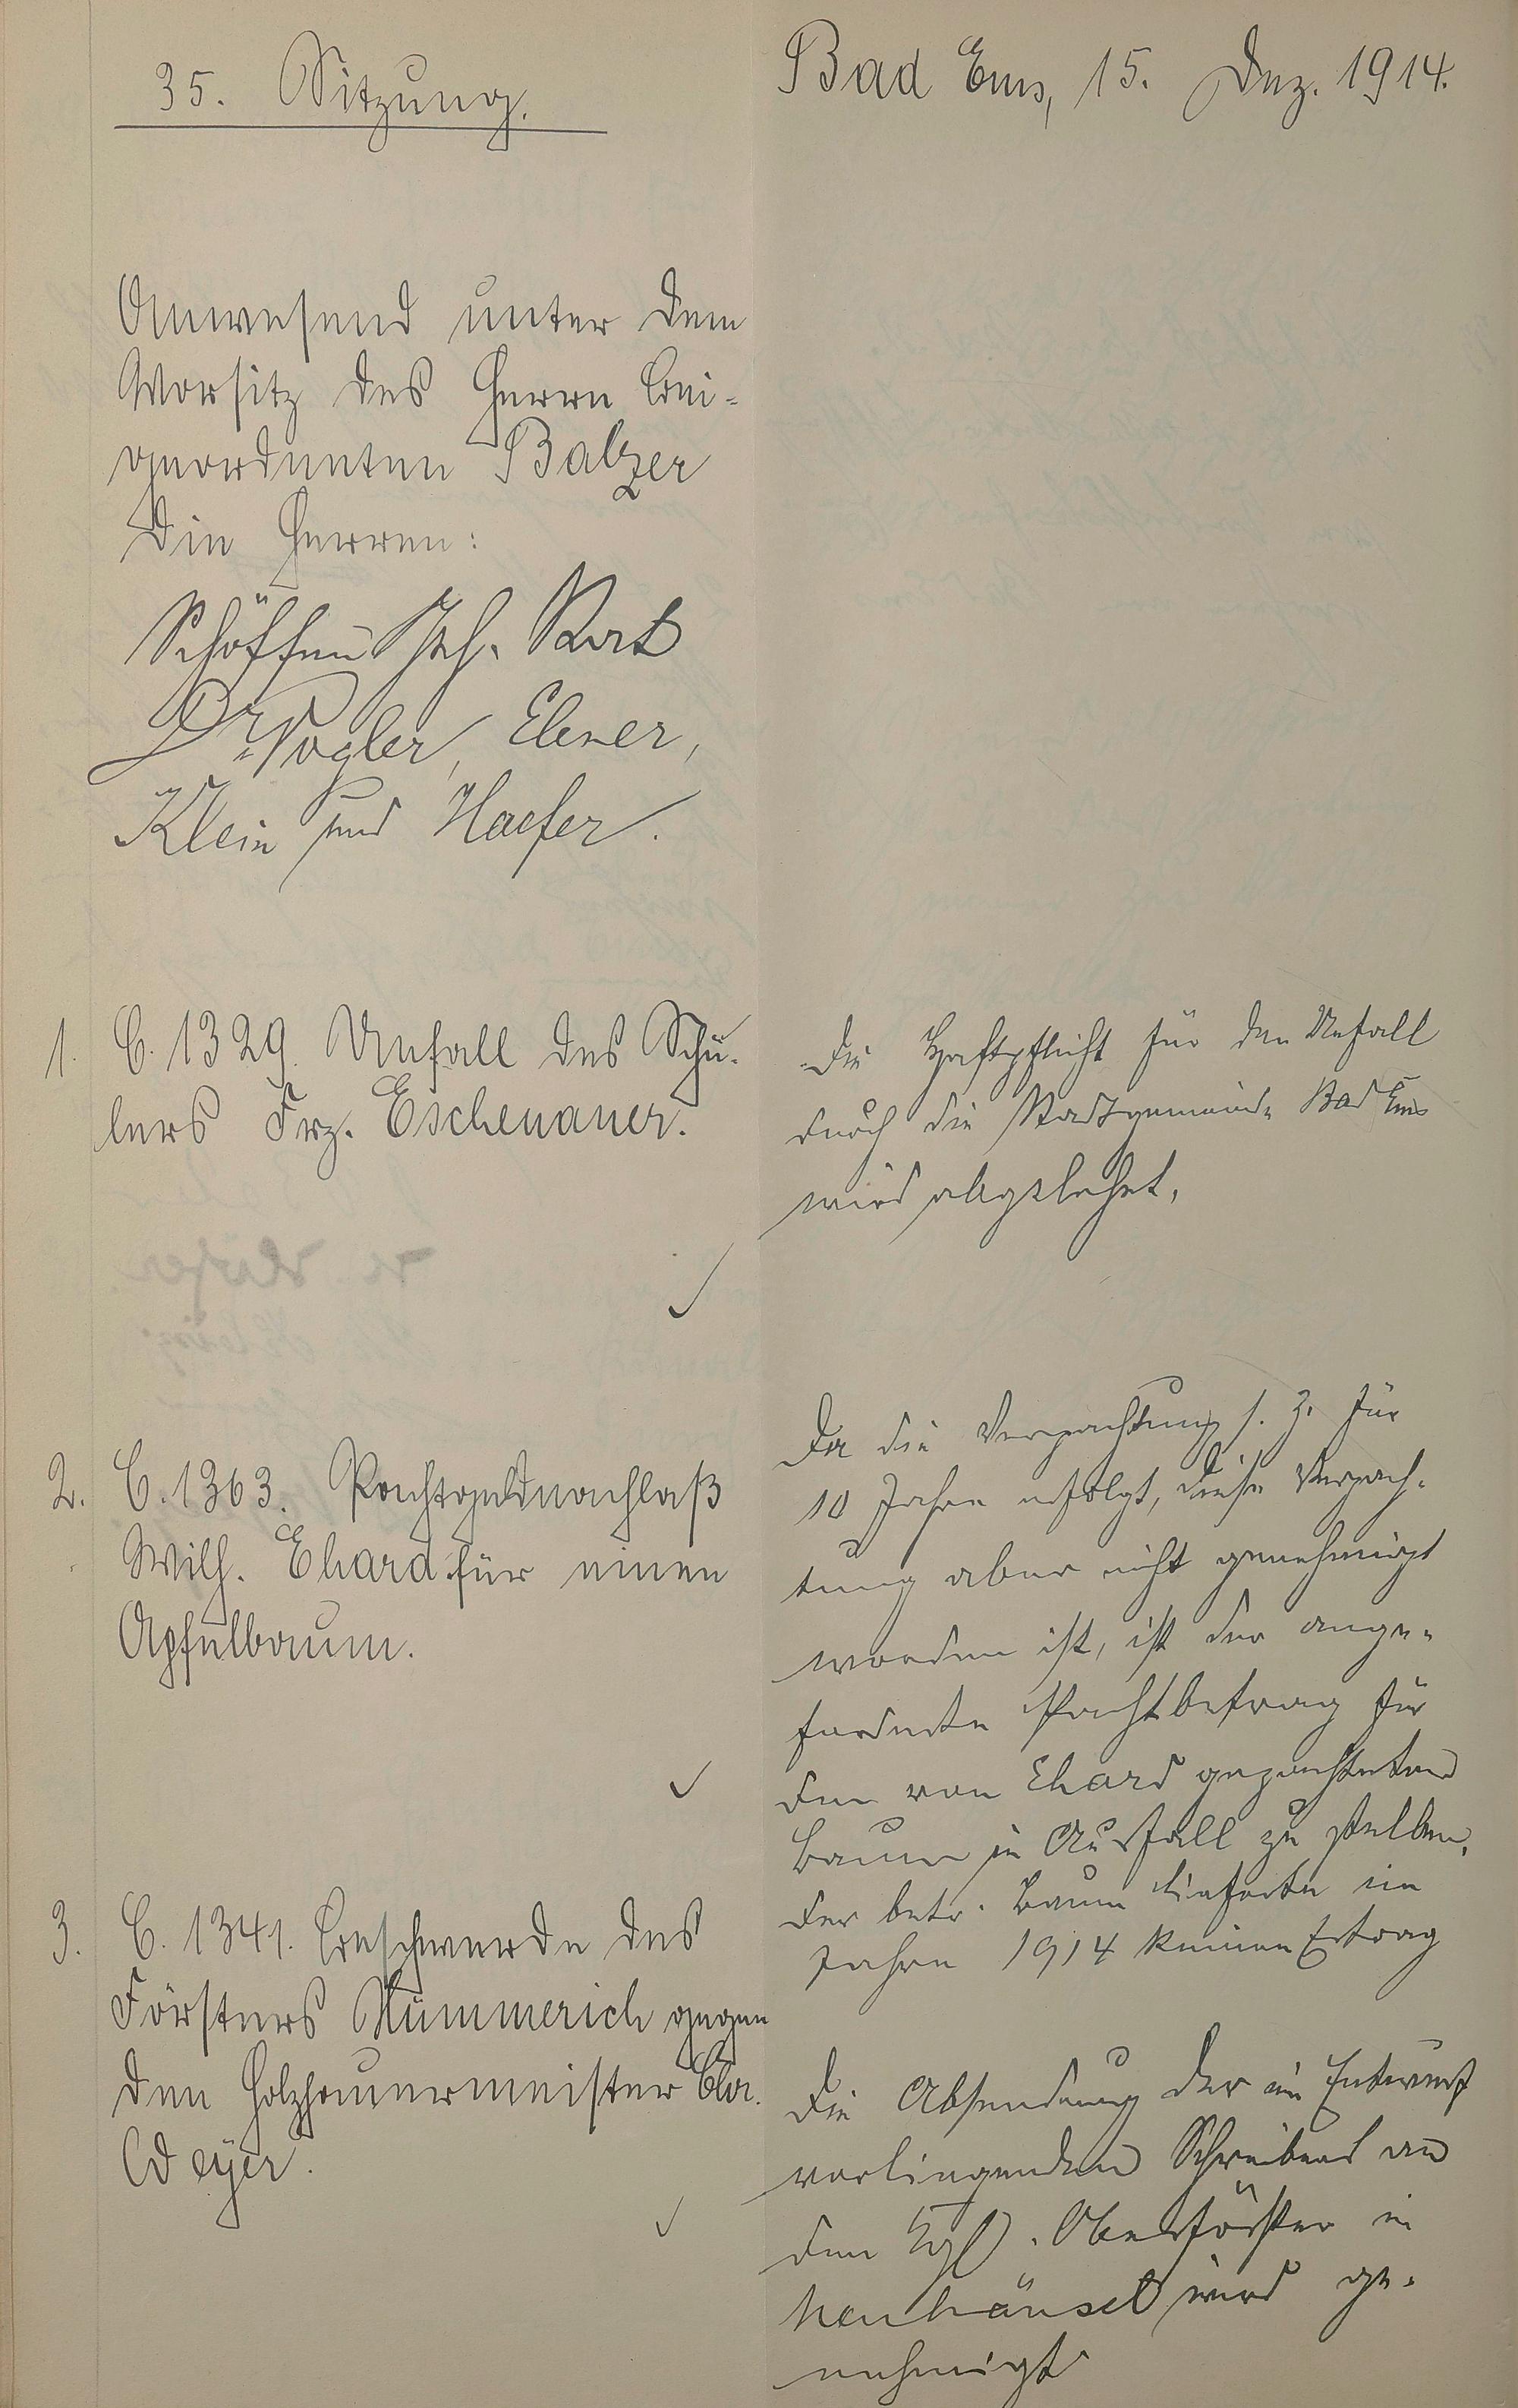 35. Sitzung.
Bad Ems, 15. Dez. 1914.
Anwesend unter dem
Vorsitz des Herrn Bei-
geordneten Balzer
die Herren:
Schöffen
Dr. Vogler, Ebner,
Klein und Haefer.
1. C. 1329. Unfall des Schü-
lers Frz. Eschenauer.
Die Haftpflicht für den Unfall
durch die Stadtgemeinde Bad Ems
wird abgelehnt.
2. C. 1363. Pachtgeldnachlaß
Wilh. Ehard für einen
Apfelbaum.
Da die Verpachtung s. Z. für
10 Jahre erfolgt, diese Verpach-
tung aber nicht genehmigt
worden ist, ist der ange-
forderte Pachtbetrag für
den von Ehard gepachteten
Baum in Ausfall zu stellen.
Der betr. Baum lieferte im
Jahre 1914 keinen Ertrag
3. C. 1341. Beschwerde des
Försters Nümmerich gegen
den Holzhauermeister Chr.
Weyer.
Die Absendung des im Entwurf
vorliegenden Schreibens an
den Kgl. Oberförster in
Neuhäusel wird ge-
nehmigt